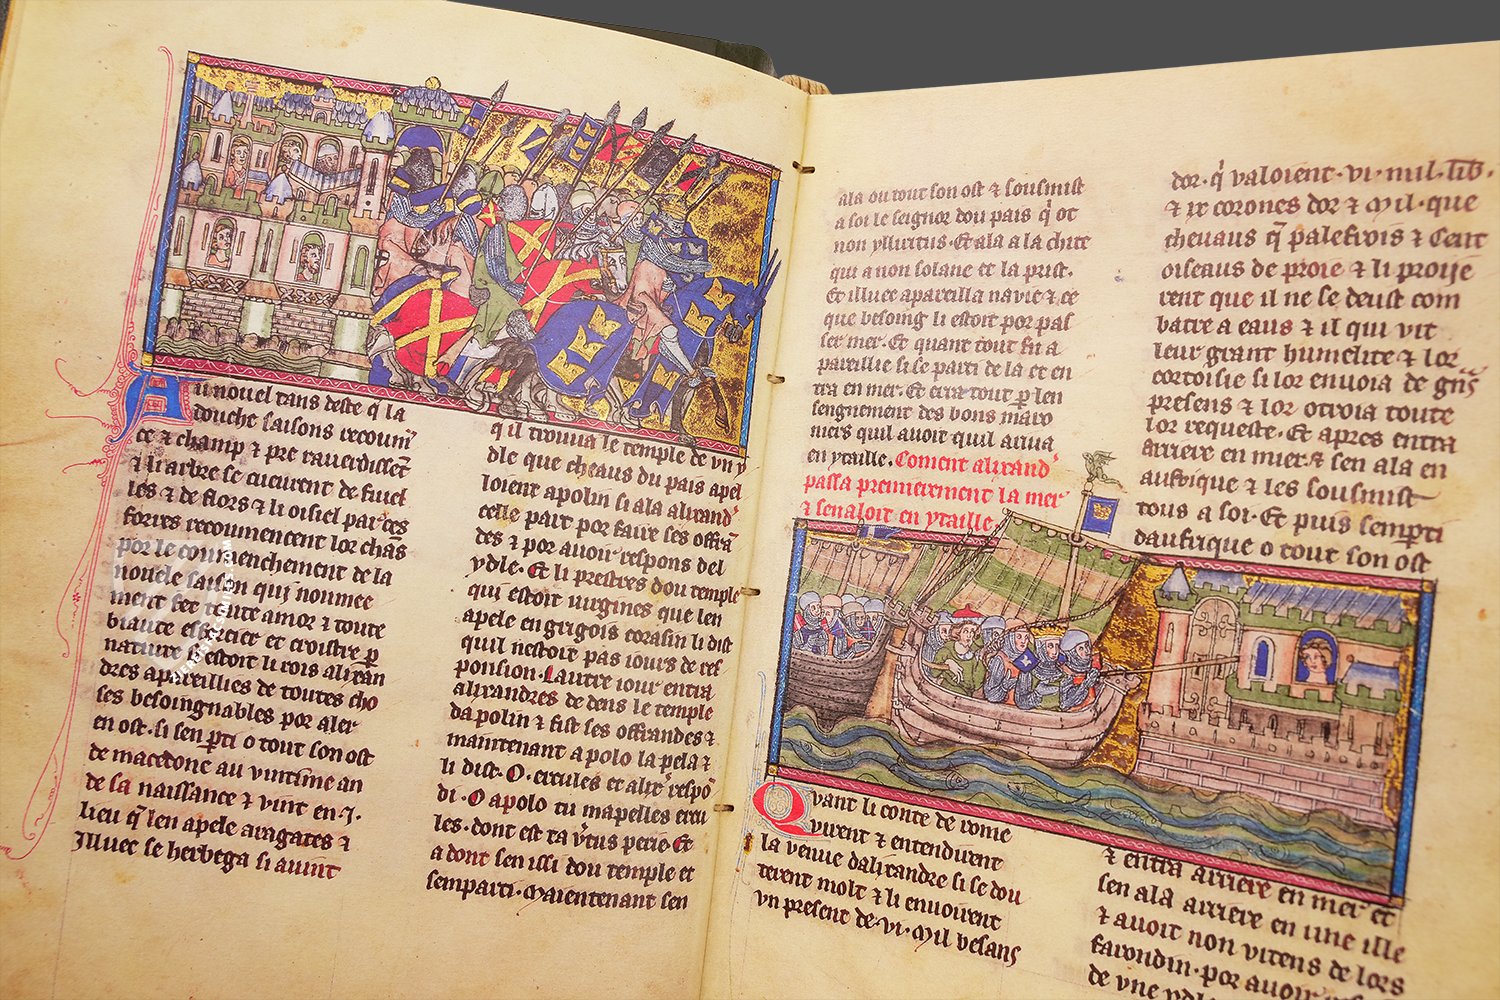 Au nouel tans deste q̄ la
douche saisons recoum̄
ce ⁊ champ ⁊ pre rauerdissēt
⁊ li arbre se cueurent de fuiel
les ⁊ de flors ⁊ li oisiel par ces
fories recoumencent lor chās
por le commenchement de la
nouele saison qui noumee
ment fet toute amor ⁊ toute
biaute esforcier et croistre p̄
nature si estoit li rois alixan
dres apareillies de toutes cho
ses besoingnables por aler
en ost. si sen p̄ti o tout son ost
de macedone au vintisme an
de sa naissance ⁊ vint en .j.
lieu q̄ len apele arragates ⁊
Illuec se herbega si auint
q il trouua le temple de vn y
dle que cheaus du pais apel
loient apolin si ala alixand'
celle part por faire ses offrā
des ⁊ por auoir respons del
ydle. Et li prestres dou temple
qui estoit uirgines que len
apele en grigois corasin li dist
quil nestoit pas iours de ref
ponsion. Lautre iour entra
alixandres de dens le temple
dapolin ⁊ fist ses offrandes ⁊
maintenant apolo la pela ⁊
li dist. O. ercules et alix' respō
di. O apolo tu mapelles ercu
les. dont est ta v'tus perie. Et
a dont sen issi dou temple et
semparti. Maientenant sen
ala ou tout son ost ⁊ sousmist
a soi le seignor dou pais q̄ ot
non yllirtus. Et ala a la chite
qui a non solane et la prist.
Et illuec apareilla nauie ⁊ ce
que besoing li estoit por pas
ser mer. Et quant tout fu a
pareillie si se parti de la et en
tra en mer. Et erra tout p̄ len
sengnement des bons maro
niers quil auoit quil ariua
en ytaille. Coment alixand'
passa premierement la mer
⁊ senaloit en ytaille
Quant li conte de rome
virent ⁊ entendirent
la venue dalixandre si se dou
terent molt ⁊ li enuoierent
vn present de .vi. mil besans
dor. q̄ valoient .vi. mil .lib.
⁊ ix corones dor ⁊ mil. que
cheuaus q̄ palefrois ⁊ Cent
oiseaus de proie ⁊ li proije
rent que il ne se deust com
batre a eaus ⁊ il qui vit
leur grant humelite ⁊ lor
cortoisie si lor enuoia de gn̄s
presens ⁊ lor otroia toute
lor requeste. Et apres entra
arriere en mier ⁊ sen ala en
aufrique ⁊ les sousmist
tous a soi. Et puis semp̄ti
daufrique o tout son ost
⁊ entra arriere en mer et
sen ala arriere en une ille
⁊ auoit non vitens de lors
farondin. por auoir
de vne ydl